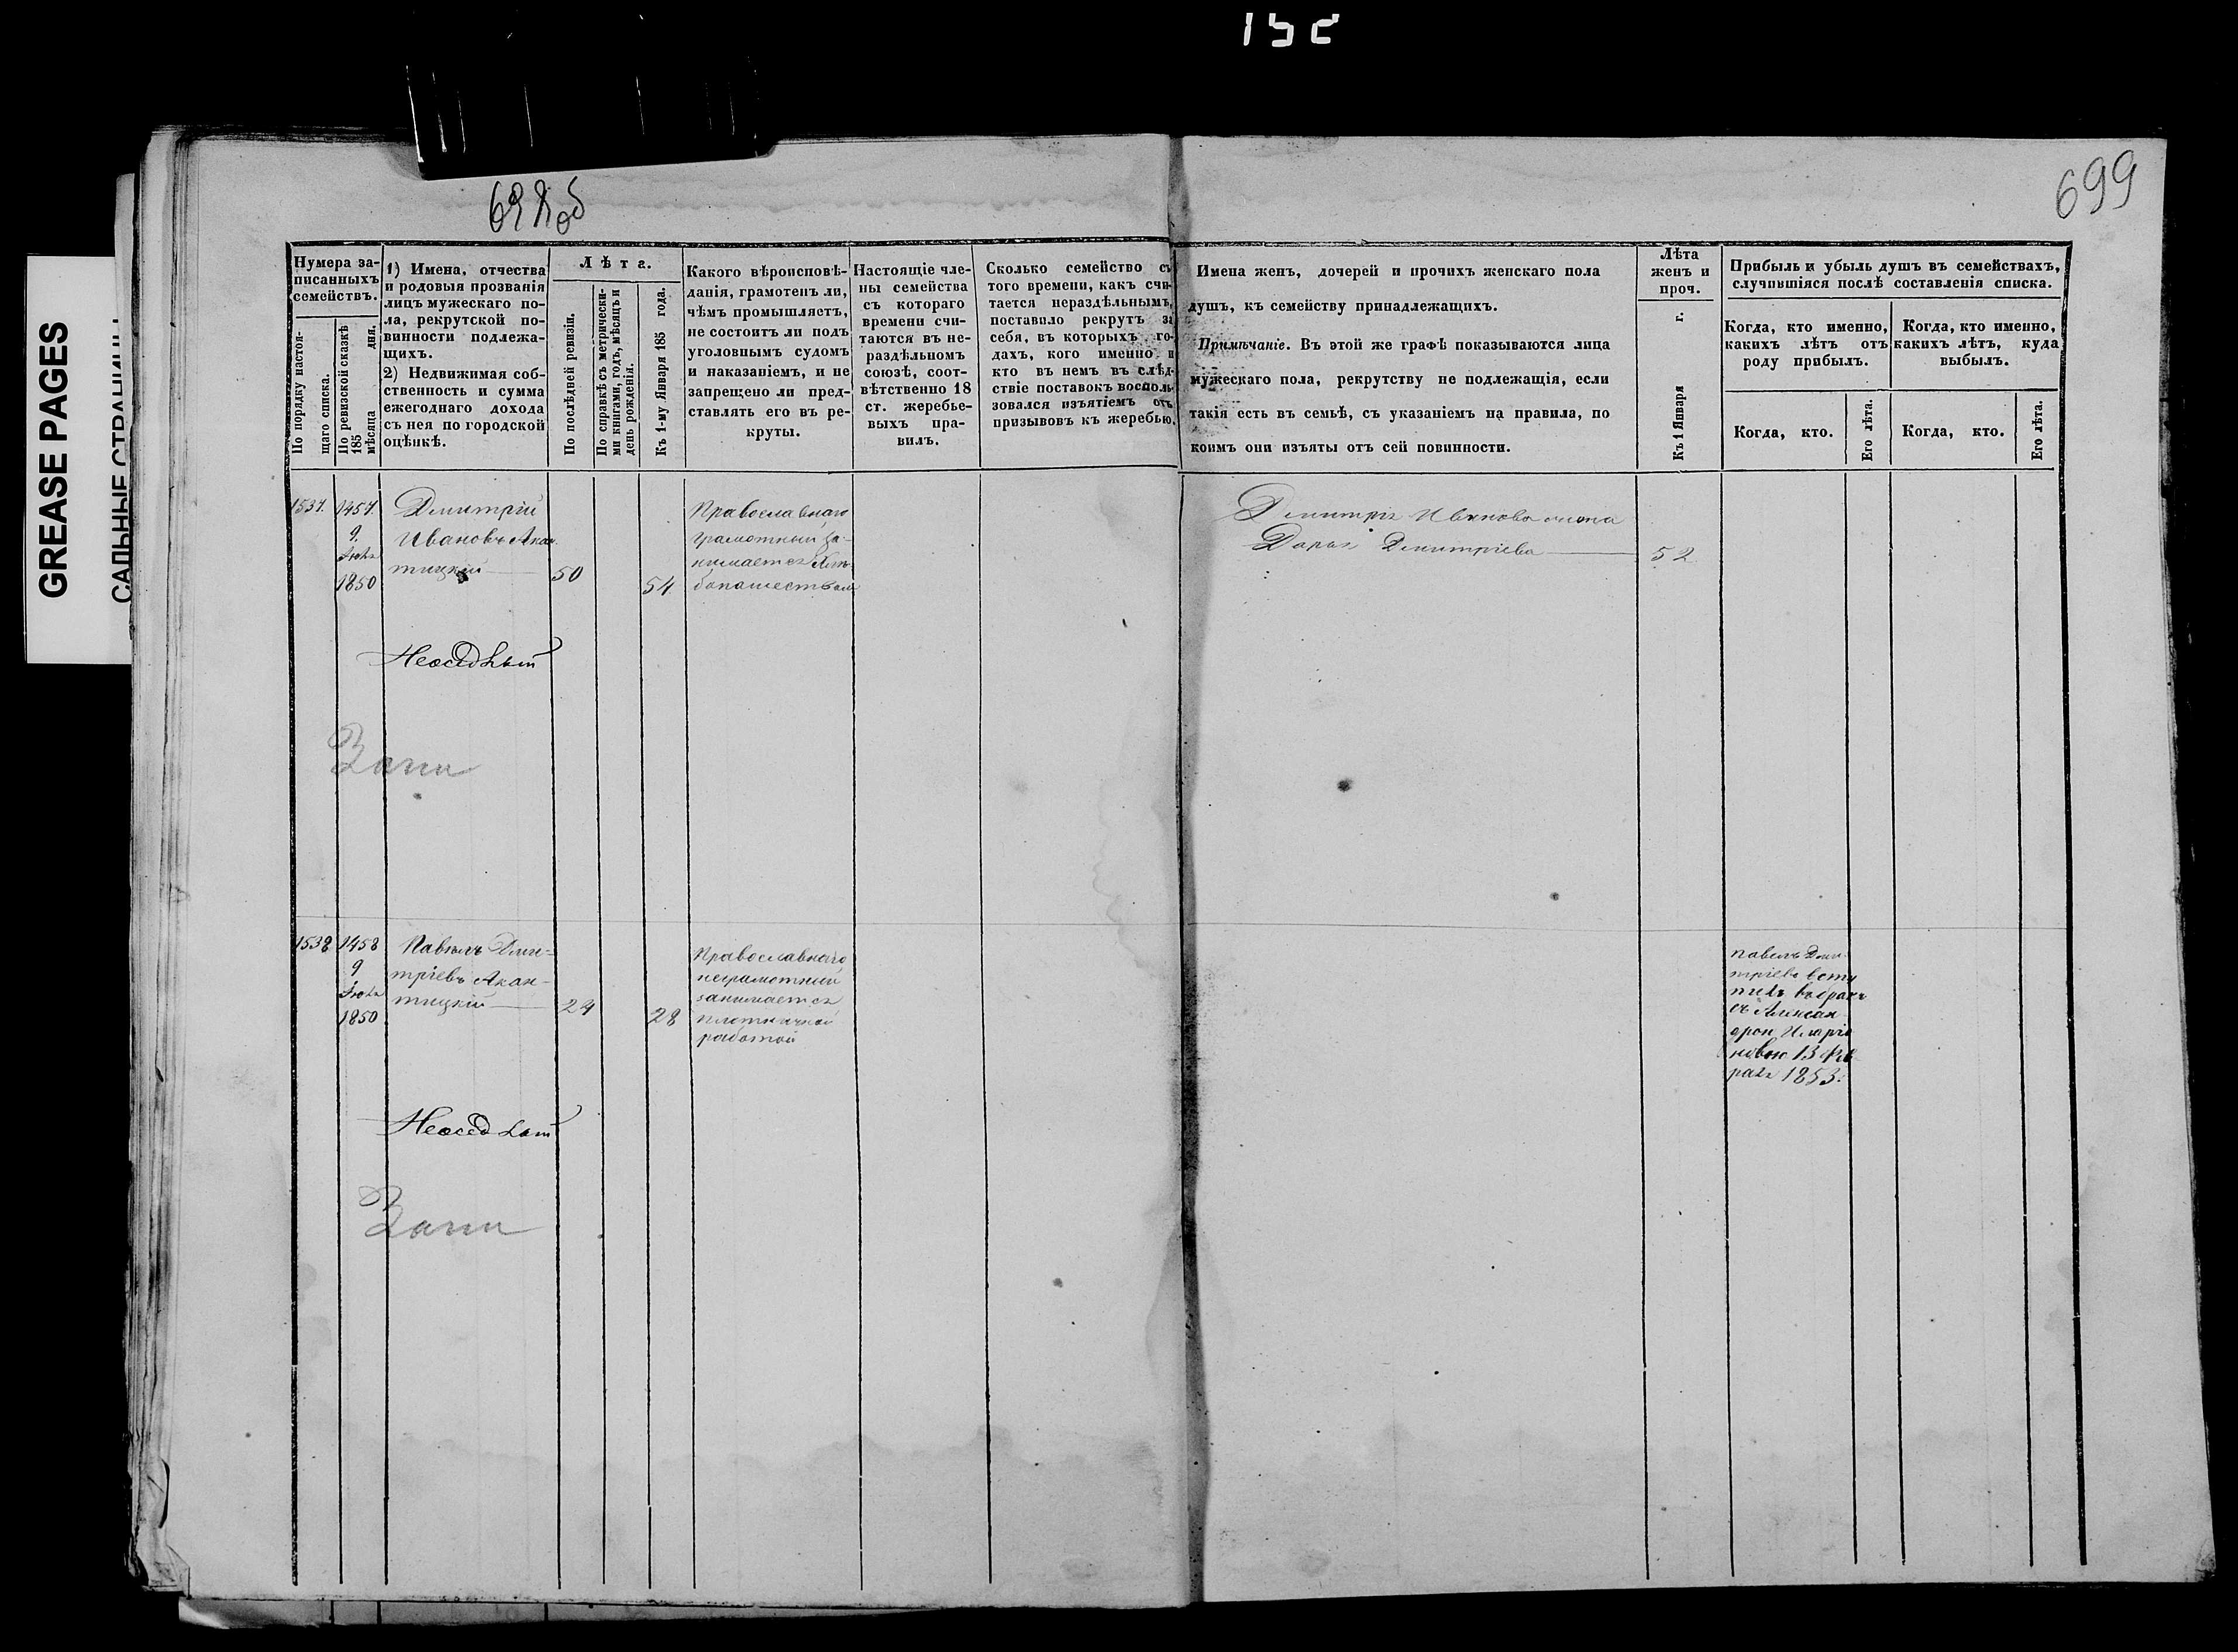 152
GREASE PAGES
САЛЬНЫЕ СТРАНИЦЫ
698об
699
Нумера за-
писанныхъ
семействъ.
По порядку настоя-
щаго списка.
По ревизской сказкѣ
185
мѣсяца дня.
1) Имена, отчества
и родовыя прозванія
лицъ мужескаго по-
ла, рекрутской по-
винности подлежа-
щихъ.
2) Недвижимая соб-
ственность и сумма
ежегоднаго дохода
съ нея по городской
оцѣнкѣ.
Лѣта.
По послѣдней ревизіи.
По справкѣ съ метрически-
ми книгами, годъ, мѣсяцъ и
день рожденія.
Къ 1-му Января 185 года.
Какого вѣроисповѣ-
данія, грамотенъ ли,
чѣмъ промышляетъ,
не состоитъ ли подъ
уголовнымъ судомъ
и наказаніемъ, и не
запрещено ли пред-
ставлять его въ ре-
круты.
Настоящіе чле-
ны семейства
съ котораго
времени счи-
таются въ не-
раздѣльномъ
союзѣ, соот-
вѣтственно 18
ст. жеребье-
выхъ пра-
вилъ.
Сколько семейство съ
того времени, какъ счи-
тается нераздѣльнымъ,
поставило рекрутъ за
себя, въ которыхъ го-
дахъ, кого именно и
кто въ немъ въ слѣд-
ствіе поставокъ восполь-
зовался изъятіемъ отъ
призывовъ къ жеребью.
Имена женъ, дочерей и прочихъ женскаго пола
душъ, къ семейству принадлежащихъ.
Примѣчаніе. Въ этой же графѣ показываются лица
мужескаго пола, рекрутству не подлежащія, если
такія есть въ семьѣ, съ указаніемъ на правила, по
коимъ они изъяты отъ сей повинности.
Лѣта
женъ и
проч.
Къ 1 Января г.
Прибыль и убыль душъ въ семействахъ,
случившіяся послѣ составленія списка.
Когда, кто именно,
какихъ лѣтъ отъ
роду прибылъ.
Когда, кто именно,
какихъ лѣтъ, куда
выбылъ.
Когда, кто.
Его лѣта.
Когда, кто.
Его лѣта.
1537. 1457.
9.
Іюля
1850
Дмитрій
Ивановъ Акан-
тицкій
50
54.
Православнаго
грамотный за-
нимается хлѣ-
бопашествомъ
Дмитрія Иванова жена
Дарья Дмитріева 52
Неосѣдлый
1538 1458
9
Іюля
1850
Павелъ Дми-
тріевъ Акан-
тицкій
24
28
Православнаго
неграмотный
занимается
плотничной
работой
Павелъ Дми-
тріевъ всту
пилъ въ бракъ
съ Алексан
дрой Иларіо
новою 13 Фев
раля 1853.
Неосѣдлый